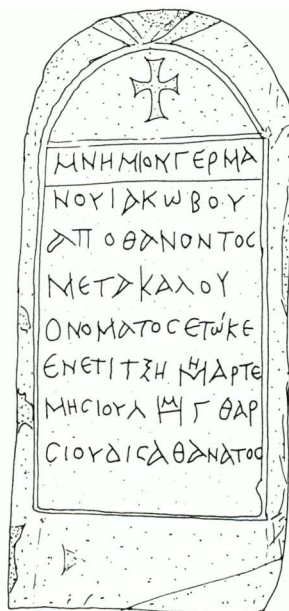 ΜΝΗΜΙΟΝΓΕΡΜΑ
ΝΟΥΙΑΚωΒΟΥ
ΑΠΟΘΑΝΟΝΤΟϹ
ΜΕΤΑΚΑΛΟΥ
ΟΝΟΜΑΤΟϹΕΤωΚΕ
ΕΝΕΤΙΤΞΗ ΜΗΑΡΤΕ
ΜΗϹΙΟΥΛ ΗΜ Γ ΘΑΡ
ϹΙΟΥΔΙϹΑΘΑΝΑΤΟϹ